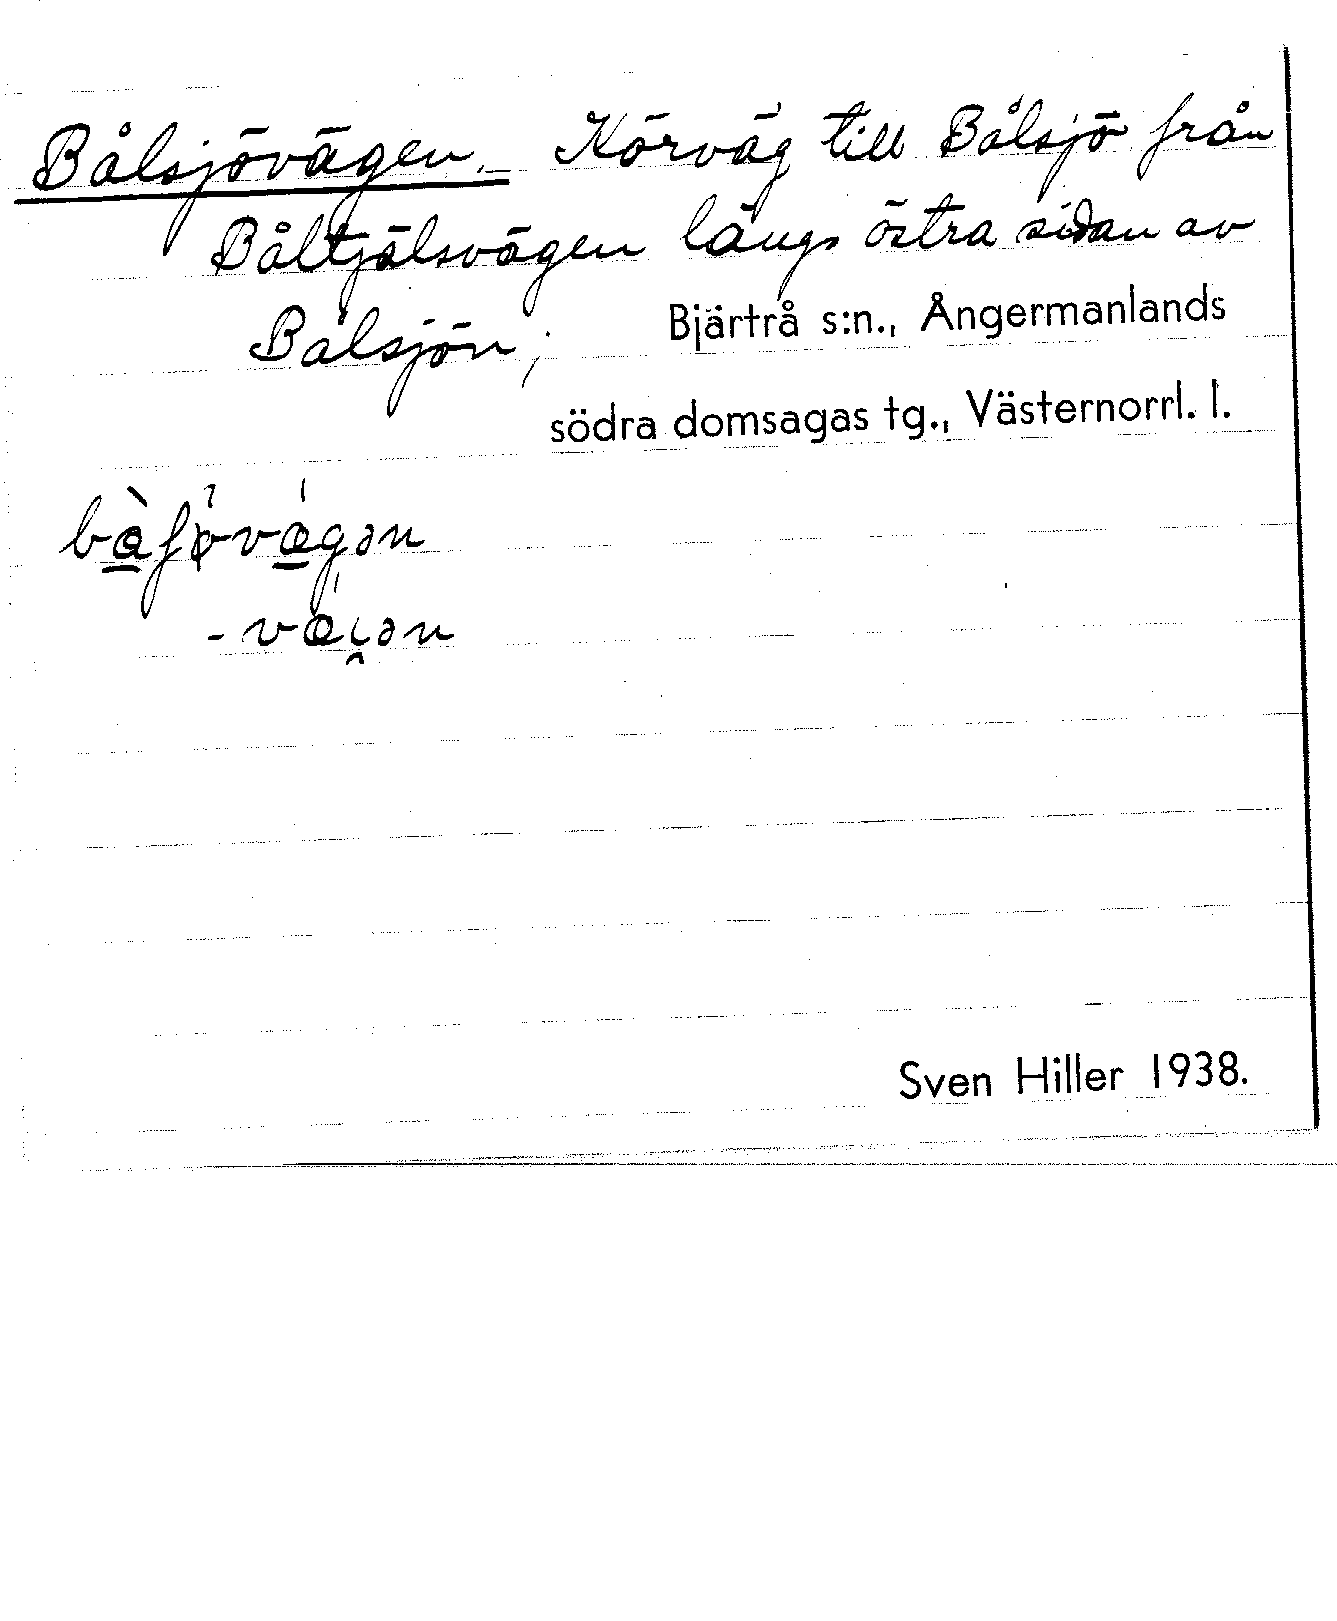 Bålsjövägen. Körväg till Bålsjö från
Båltjälsvägen längs östra sidan av
Bålsjön; Bjärtrå s:n., Ångermanlands
södra domsagas tg., Västernorrl. l.
Sven Hiller 1938.